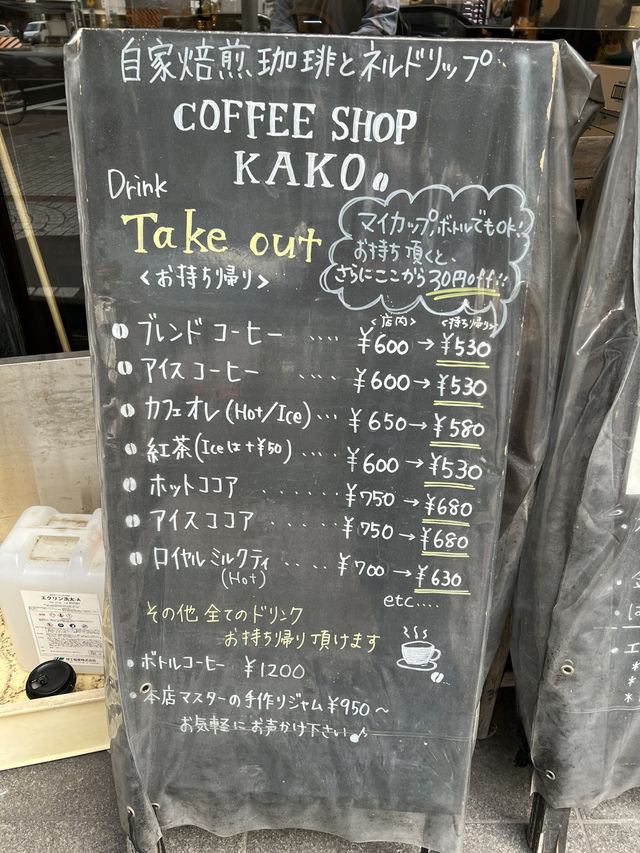 自家焙煎珈琲とネルドリップ
COFFEE SHOP
KAKO
Drink
Take out
<お持ち帰り>
マイカップ、ボトルでもOK!
お持ち頂くと、
さらにここから30円off!!
<店内> <持ち帰り>
ブレンド コーヒー .... ¥600→¥530
アイス コーヒー ..... ¥600→¥530
カフェオレ(Hot/Ice)... ¥650→¥580
紅茶(Iceは+¥50) .... ¥600→¥530
ホットココア ....... ¥750→¥680
アイスココア ...... ¥750→¥680
ロイヤルミルクティ .... ¥700→¥630
(Hot)
etc....
その他 全てのドリンク
お持ち帰り頂けます
・ボトルコーヒー ¥1200
・本店マスターの手作りジャム ¥950～
お気軽にお声かけ下さい♪
エクリン洗太-A